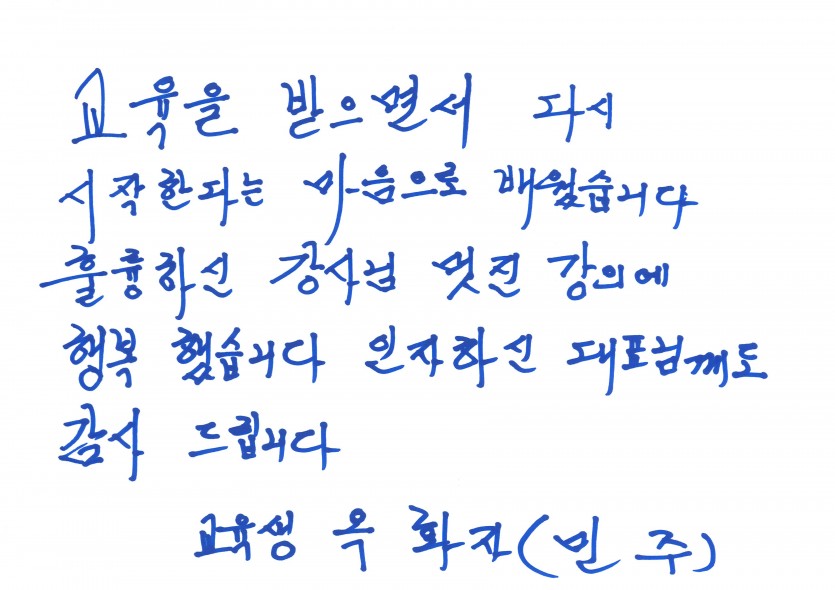 교육을 받으면서 다시
시작한다는 마음으로 배웠습니다
훌륭하신 강사님 멋진 강의에
행복 했습니다 인자하신 대표님께도
감사 드립니다
교육생 옥 화자(민 주)